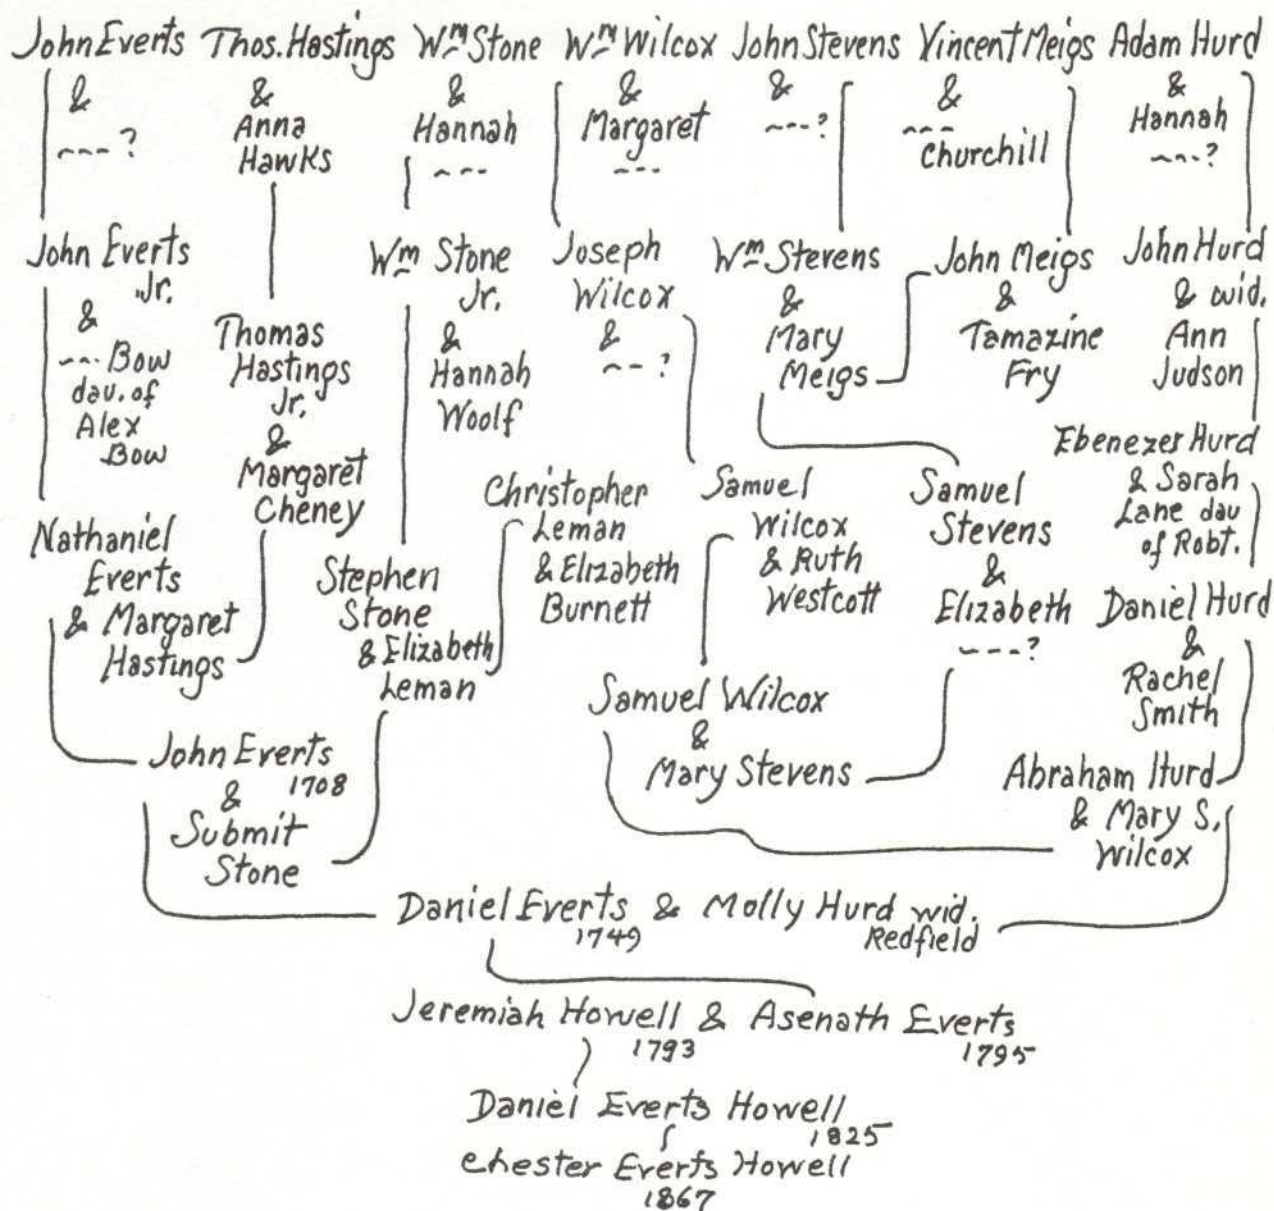 John Everts
&
---?
Thos. Hastings
&
Anna
Hawks
Wm Stone
&
Hannah
---
Wm Wilcox
&
Margaret
---
John Stevens
&
---?
Vincent Meigs
&
---
Churchill
Adam Hurd
&
Hannah
---?
John Everts
Jr.
&
--- Bow
dau. of
Alex
Bow
Thomas
Hastings
Jr.
&
Margaret
Cheney
Wm Stone
Jr.
&
Hannah
Woolf
Joseph
Wilcox
&
---?
Wm Stevens
&
Mary
Meigs
John Meigs
&
Tamazine
Fry
John Hurd
& wid.
Ann
Judson
Ebenezer Hurd
& Sarah
Lane dau
of Robt.
Nathaniel
Everts
& Margaret
Hastings
Stephen
Stone
& Elizabeth
Leman
Christopher
Leman
& Elizabeth
Burnett
Samuel
Wilcox
& Ruth
Westcott
Samuel
Stevens
&
Elizabeth
---?
Daniel Hurd
&
Rachel
Smith
John Everts
1708
&
Submit
Stone
Samuel Wilcox
&
Mary Stevens
Abraham Hurd
& Mary S.
Wilcox
Daniel Everts & Molly Hurd wid.
1749 Redfield
Jeremiah Howell & Asenath Everts
1793 1795
Daniel Everts Howell
1825
Chester Everts Howell
1867